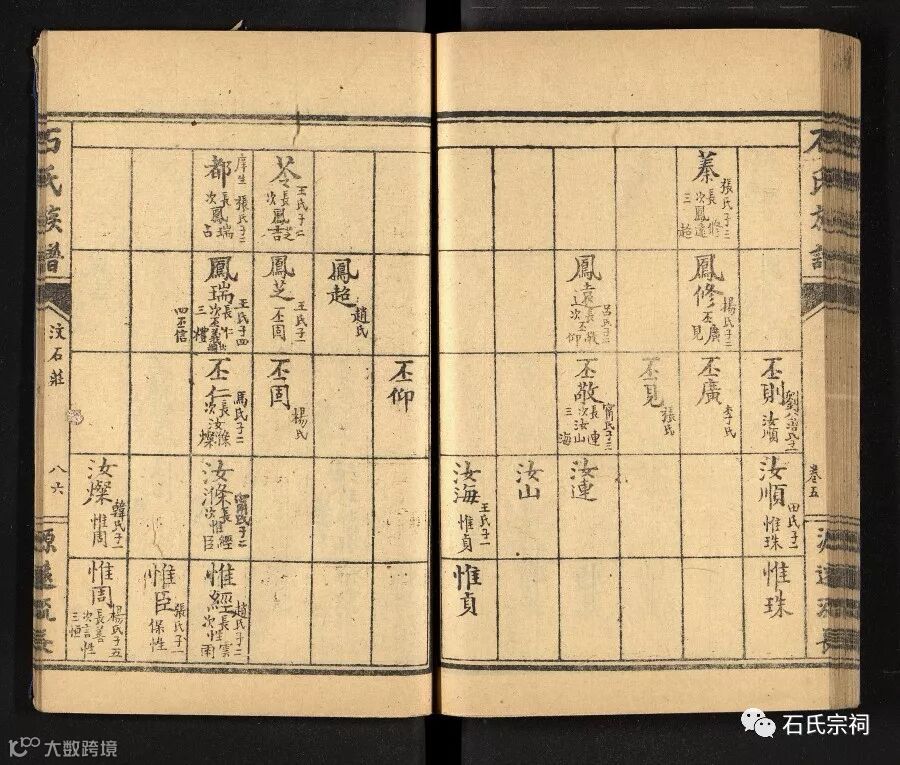 石氏族譜
卷五
源遠流長
蓁
張氏子三
長鳳修
次鳳遠
三鳳超
鳳修
楊氏子二
丕廣
丕見
鳳遠
呂氏子二
長丕敬
次丕仰
丕則
汝順
丕廣
李氏
丕見
張氏
丕敬
甯氏子三
長汝連
次汝山
三海
汝順
田氏子一
惟珠
汝連
汝山
汝海
王氏子一
惟貞
惟珠
惟貞
苓
王氏子二
長鳳芝
次鳳吉
都
庠生
張氏子二
長鳳瑞
次鳳占
鳳超
趙氏
鳳芝
王氏子一
丕固
鳳瑞
王氏子四
長丕仁
次丕義
三禮
四丕信
丕仰
丕固
楊氏
丕仁
馬氏子二
長汝滌
次汝燦
汝滌
甯氏子二
長惟經
次惟臣
汝燦
韓氏子一
惟周
惟經
趙氏子二
長性雲
次性雨
惟臣
張氏子一
保性
惟周
楊氏子五
長善性
次言性
三恒
石氏族譜
汶石莊
八六
源遠流長
石氏宗祠
大数跨境